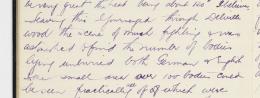 be very great the
leaving this I journeyed through Delville
wood the scene of much fighting & was
astonished to find the number of bodies
lying unburied both German & English
in a small area over 100 bodies could
be seen practically all of which were